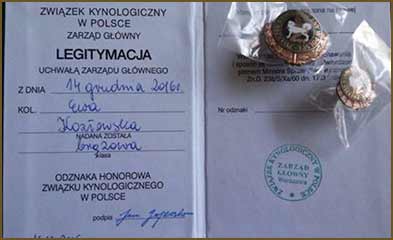 ZWIĄZEK KYNOLOGICZNY
W POLSCE
ZARZĄD GŁÓWNY
LEGITYMACJA
UCHWAŁĄ ZARZĄDU GŁÓWNEGO
Z DNIA 14 grudnia 2016r.
KOL. Ewa
Kozłowska
NADANA ZOSTAŁA
brązowa
klasa
ODZNAKA HONOROWA
ZWIĄZKU KYNOLOGICZNEGO
W POLSCE
podpis
pismem Ministra
Nr odznaki
ZWIĄZEK KYNOLOGICZNY W POLSCE
ZARZĄD
GŁÓWNY
Warszawa